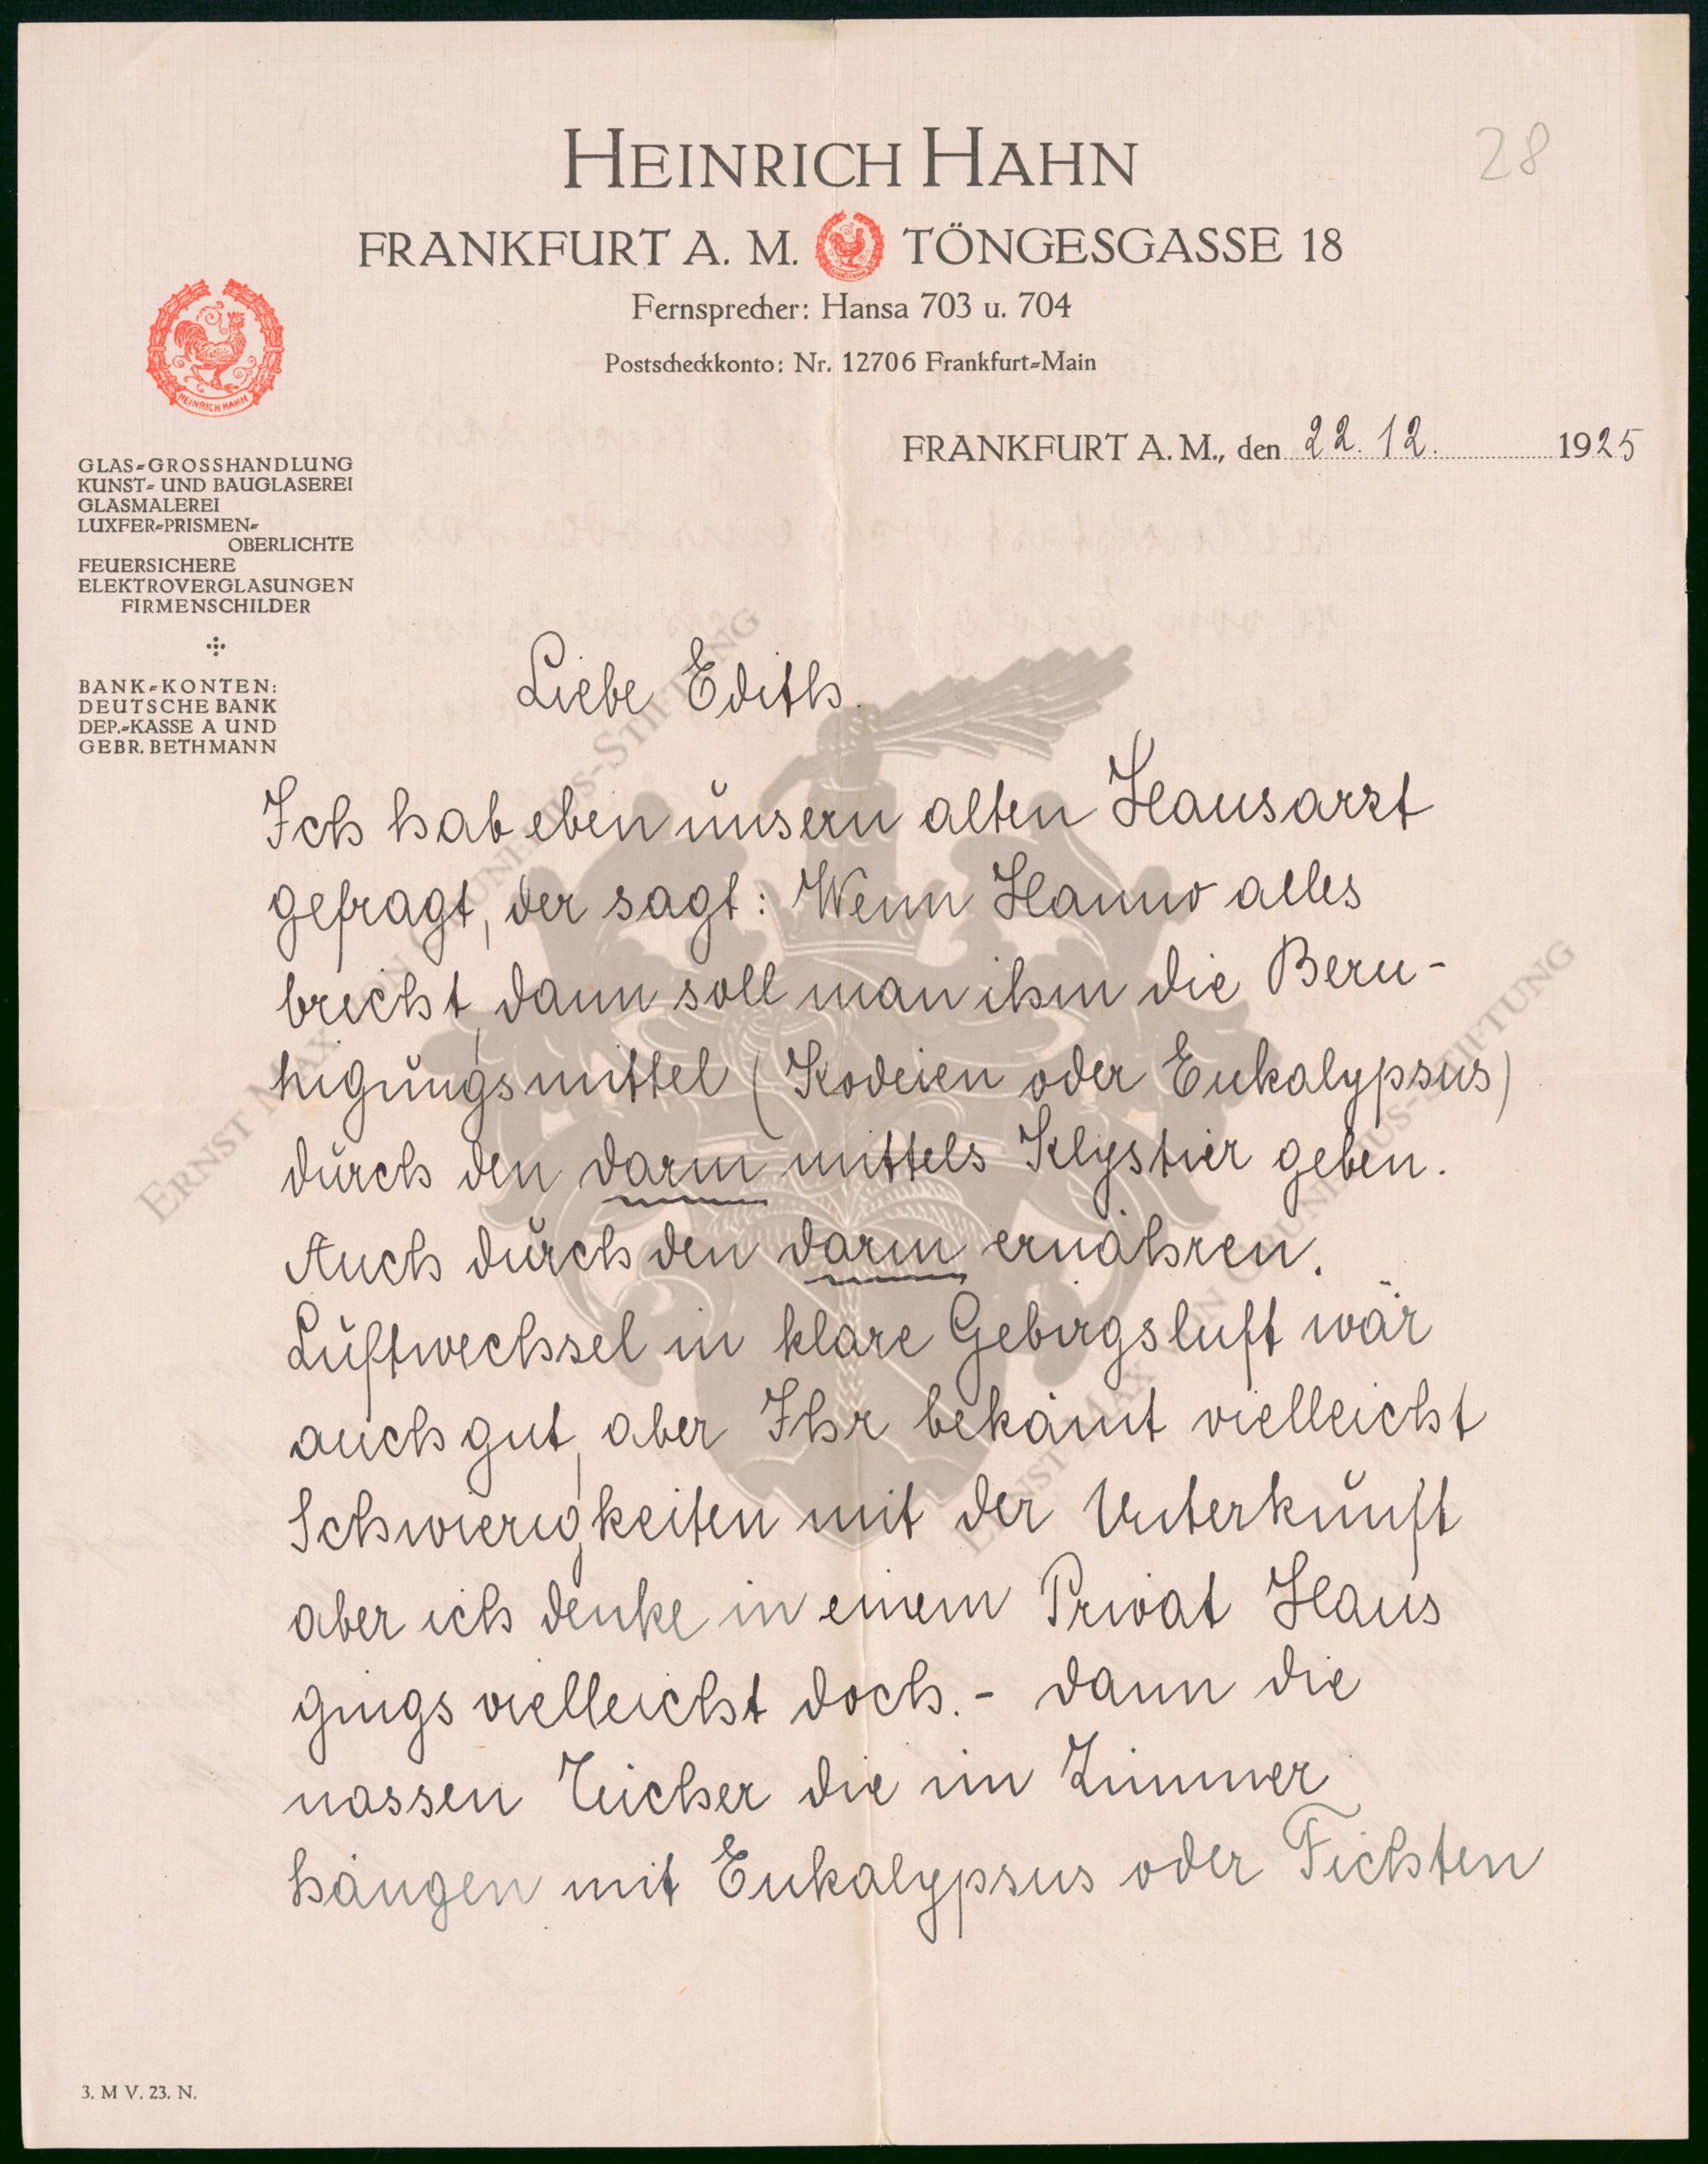 HEINRICH HAHN
28
FRANKFURT A. M. TÖNGESGASSE 18
Fernsprecher: Hansa 703 u. 704
Postscheckkonto: Nr. 12706 Frankfurt-Main
HEINRICH HAHN
FRANKFURT A. M., den 22. 12. 1925
GLAS-GROSSHANDLUNG
KUNST- UND BAUGLASEREI
GLASMALEREI
LUXFER-PRISMEN-
OBERLICHTE
FEUERSICHERE
ELEKTROVERGLASUNGEN
FIRMENSCHILDER
BANK-KONTEN:
DEUTSCHE BANK
DEP.-KASSE A UND
GEBR. BETHMANN
Liebe Edith.
Ich hab eben unsern alten Hausarzt
gefragt, der sagt: Wenn Hanno alles
bricht, dann soll man ihm die Beru-
higungsmittel (Kodeien oder Eukalypsus)
durch den darm mittels Klystier geben.
Auch durch den darm ernähren.
Luftwechsel in klare Gebirgsluft wär
auch gut, aber Ihr bekämt vielleicht
Schwierigkeiten mit der Unterkunft
aber ich denke in einem Privat Haus
gings vielleicht doch. - dann die
nassen Tücher die im Zimmer
hängen mit Eukalypsus oder Fichten
3. M V. 23. N.
ERNST MAX VON GRUNELIUS-STIFTUNG
ERNST MAX VON GRUNELIUS-STIFTUNG